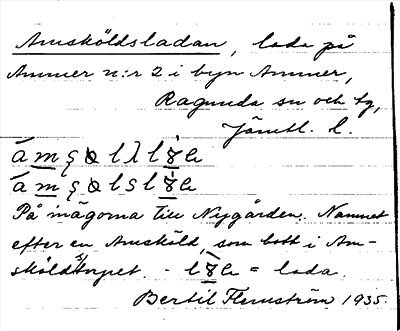 Amsköldsladan, lada på
Ammer n:r 2 i byn Ammer,
Ragunda sn och tg,
Jämtl. l.
På mägorna till Nygården. Namnet
efter en Amsköld, som bott i Am-
sköldstorpet. - = lada.
Bertil Flemström 1935.